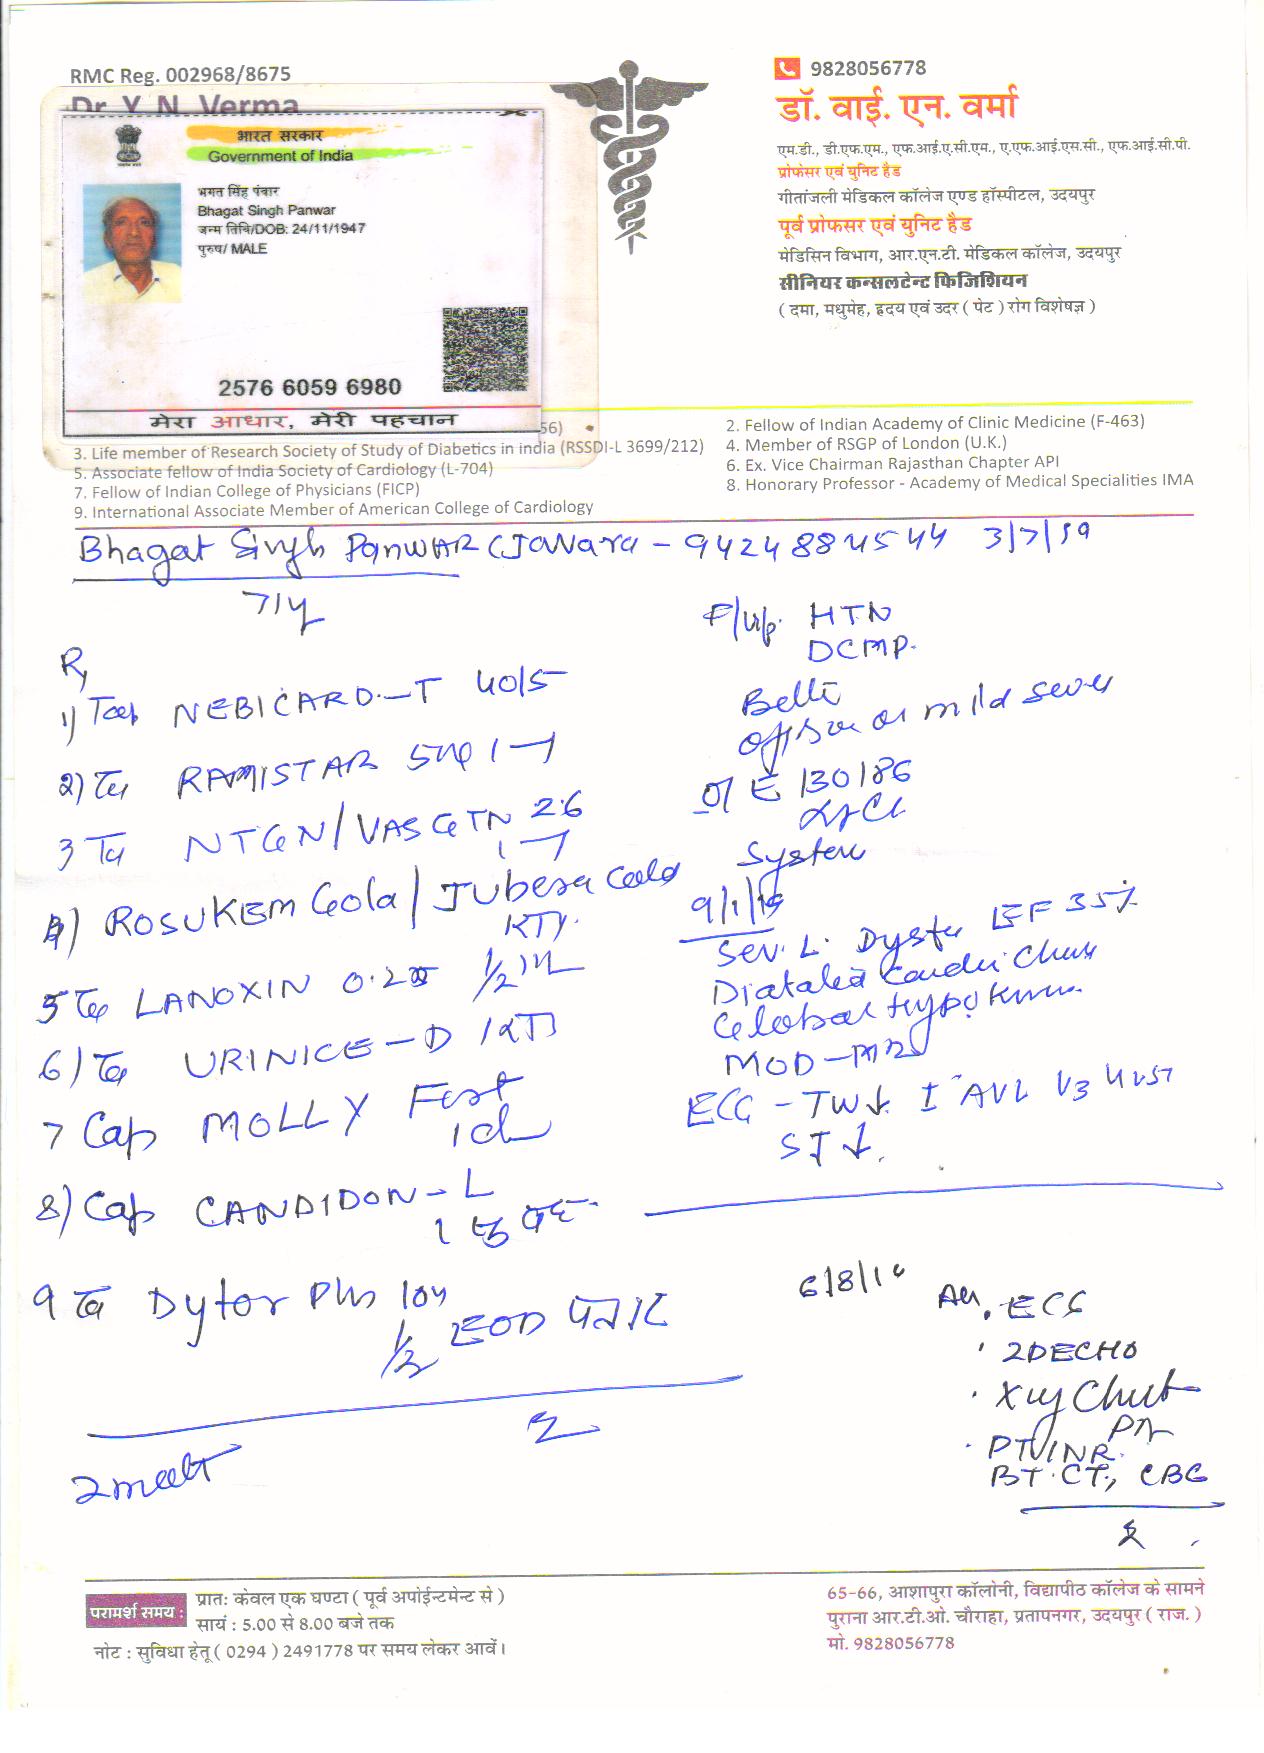 RMC Reg. 002968/8675
Dr. Y. N. Verma
भारत सरकार
Government of India
भगत सिंह पंवार
Bhagat Singh Panwar
जन्म तिथि/DOB: 24/11/1947
पुरुष/ MALE
2576 6059 6980
मेरा आधार, मेरी पहचान
9828056778
डॉ. वाई. एन. वर्मा
एम.डी., डी.एफ.एम., एफ.आई.ए.सी.एम., ए.एफ.आई.एस.सी., एफ.आई.सी.पी.
प्रोफेसर एवं युनिट हैड
गीतांजली मेडिकल कॉलेज एण्ड हॉस्पीटल, उदयपुर
पूर्व प्रोफसर एवं युनिट हैड
मेडिसिन विभाग, आर.एन.टी. मेडिकल कॉलेज, उदयपुर
सीनियर कन्सलटेन्ट फिजिशियन
( दमा, मधुमेह, हृदय एवं उदर ( पेट ) रोग विशेषज्ञ )
56)
2. Fellow of Indian Academy of Clinic Medicine (F-463)
3. Life member of Research Society of Study of Diabetics in india (RSSDI-L 3699/212)
4. Member of RSGP of London (U.K.)
5. Associate fellow of India Society of Cardiology (L-704)
6. Ex. Vice Chairman Rajasthan Chapter API
7. Fellow of Indian College of Physicians (FICP)
8. Honorary Professor - Academy of Medical Specialities IMA
9. International Associate Member of American College of Cardiology
Bhagat Singh PANWAR (Jawara - 9424884544 3/7/19
71y
R
1) Tab NEBICARD-T 40/5
2) RAMISTAR 5mg
3 NTGN/VASGTN 2.6
4) ROSUKEM Gold/Jubera Gold
5 LANOXIN 0.25 1/2
6) URINICE-D
7 Cap MOLLY Fost
8) Cap CANDIDON-L
9 Dytor Plus 10
1/2 EOD
F/up. HTN
DCMP.
O/E 130/86
System
9/1/19
Sev. L. LEF 35%
Global Hypokin
MOD-MR
ECG - TW↓ I AVL V3
ST↓
6/8/1
ECG
2DECHO
Xray Chest PA
PT/INR
BT. CT., CBC
परामर्श समय :
प्रातः केवल एक घण्टा ( पूर्व अपोईन्टमेन्ट से )
सायं : 5.00 से 8.00 बजे तक
नोट : सुविधा हेतू ( 0294 ) 2491778 पर समय लेकर आवें।
65-66, आशापुरा कॉलोनी, विद्यापीठ कॉलेज के सामने
पुराना आर.टी.ओ. चौराहा, प्रतापनगर, उदयपुर ( राज. )
मो. 9828056778